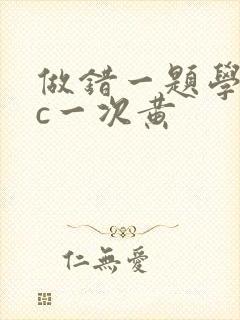 做錯一題學
c一次黃
仁無愛